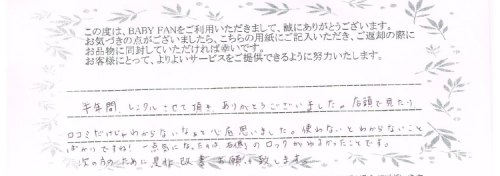 この度は、BABY FANをご利用いただきまして、誠にありがとうございます。
お気づきの点がございましたら、こちらの用紙にご記入いただき、ご返却の際に
お品物に同封していただければ幸いです。
お客様にとって、よりよいサービスをご提供できるように努力いたします。
半年間 レンタルさせて頂き ありがとうございました。店頭で見たり
口コミだけじゃわからないなぁって心底思いました。使わないとわからないこと
ばかりですね! 気になったのは のロックがゆるかったことです。
次の方のために是非改善お願い致します。